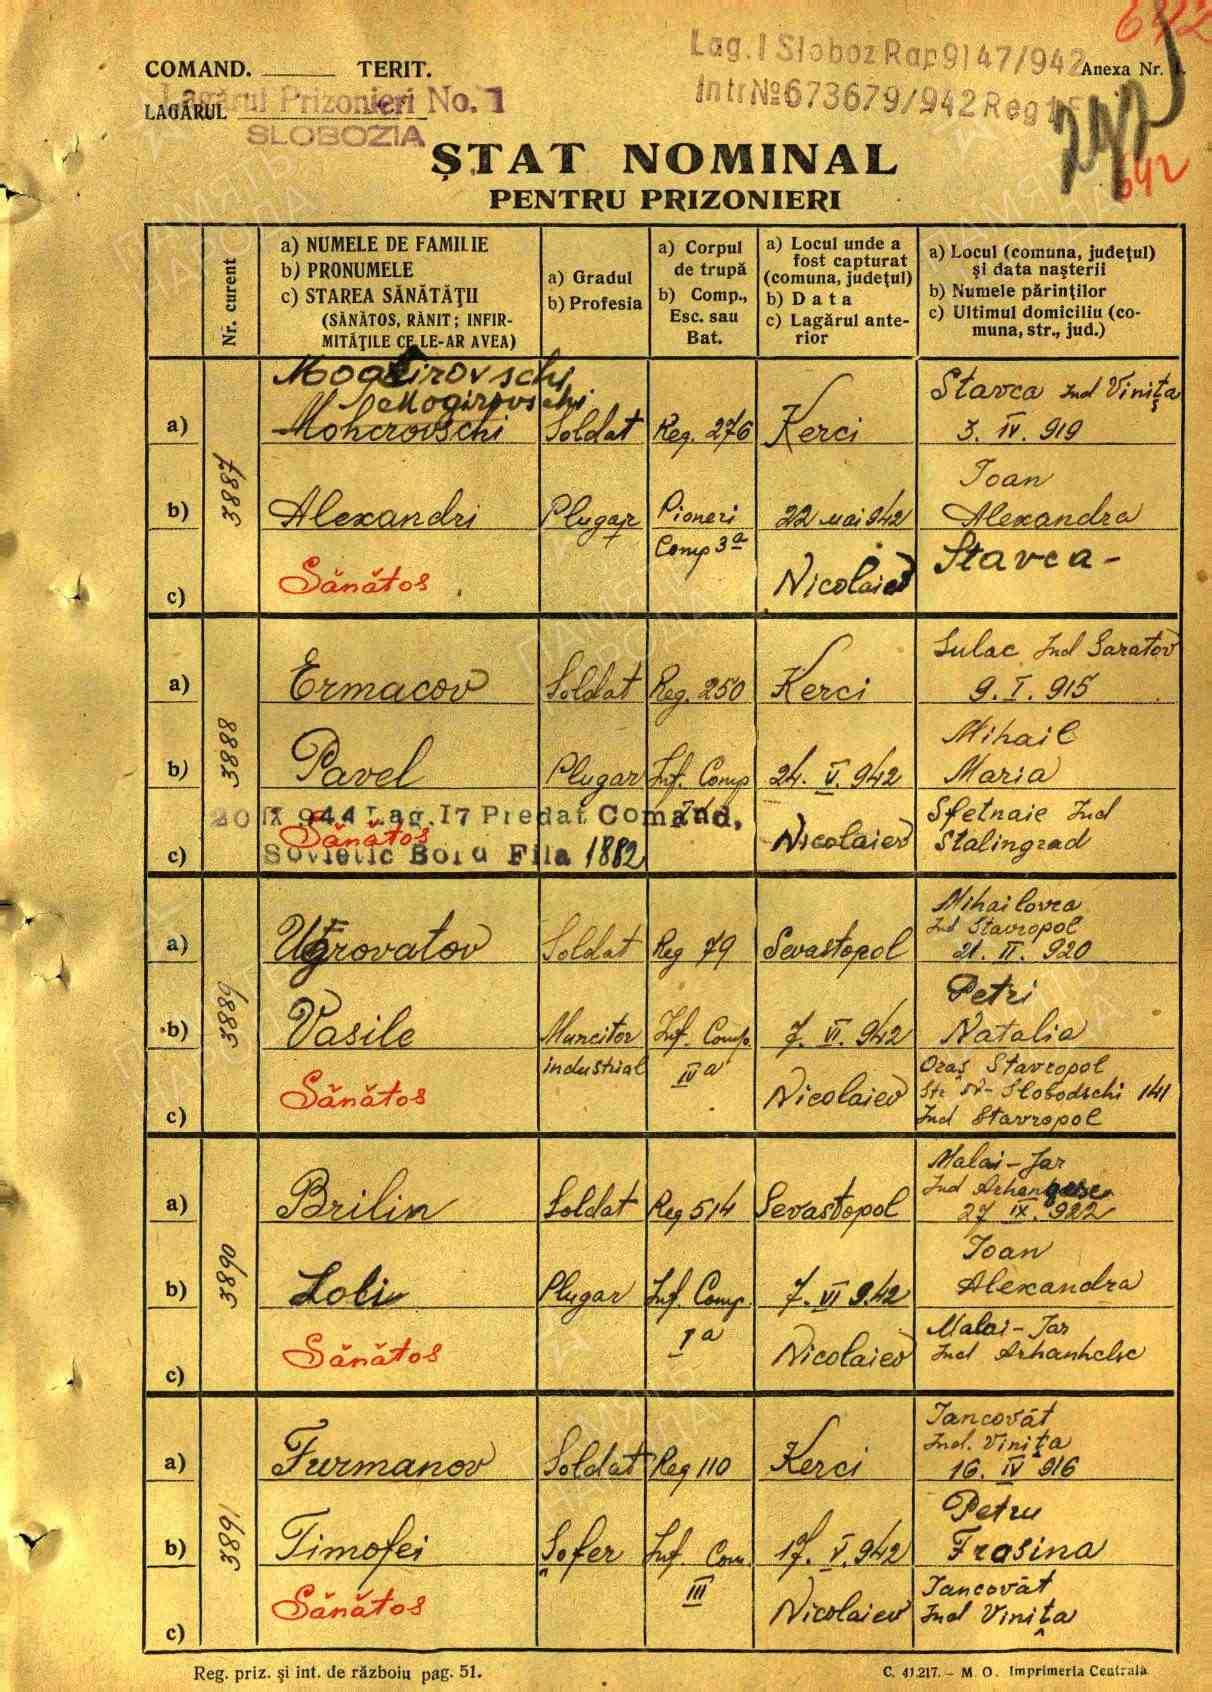 642
Lag. I Sloboz Rap 9147/942
Intr № 673679/942 Reg 15
COMAND. ______ TERIT.
Anexa Nr. 1.
LAGĂRUL
Lagărul Prizonieri No. 1
SLOBOZIA
242
642
ȘTAT NOMINAL
PENTRU PRIZONIERI
Nr. curent
a) NUMELE DE FAMILIE
b) PRONUMELE
c) STAREA SĂNĂTĂŢII
(SĂNĂTOS, RĂNIT; INFIR-
MITĂŢILE CE LE-AR AVEA)
a) Gradul
b) Profesia
a) Corpul
de trupă
b) Comp.,
Esc. sau
Bat.
a) Locul unde a
fost capturat
(comuna, judeţul)
b) Data
c) Lagărul ante-
rior
a) Locul (comuna, judeţul)
şi data naşterii
b) Numele părinţilor
c) Ultimul domiciliu (co-
muna, str., jud.)
3887
Mogirovschi
Mogirovschi
a) Mohcrovschi
Soldat
Reg. 276
Kerci
Stavca Jud Viniţa
3. IV. 919
b) Alexandri
Plugar
Pioneri
Comp 3ª
22 mai 942
Ioan
Alexandra
c) Sănătos
Nicolaiev
Stavca -
3888
a) Ermacov
Soldat
Reg. 250
Kerci
Sulac Jud Saratov
9. I. 915
b) Pavel
Plugar
Inf. Comp
24. V. 942
Mihail
Maria
20 IX 944 Lag. 17 Predat Comand,
Sovietic Bolu Fila 1882
c) Sănătos
Nicolaiev
Sfetnaie Jud
Stalingrad
3889
a) Ugrovatov
Soldat
Reg 79
Sevastopol
Mihailovca
Jud Stavropol
21. II. 920
b) Vasile
Muncitor
industrial
Inf. Comp.
IVª
7. VI. 942
Petri
Natalia
c) Sănătos
Nicolaiev
Oraş Stavropol
Str Slobodschi 141
Jud Stavropol
3890
a) Brilin
Soldat
Reg 514
Sevastopol
Malai-Jar
Jud
27 IX. 922
b)
Plugar
Inf. Comp.
Iª
7. VI 942
Ioan
Alexandra
c) Sănătos
Nicolaiev
Malai-Jar
Jud Arhanhelsc
3891
a) Furmanov
Soldat
Reg 110
Kerci
Iancovăt
Jud. Viniţa
16. IV 916
b) Timofei
Şofer
Inf. Com.
III
17. V. 942
Petru
Frasina
c) Sănătos
Nicolaiev
Iancovăt
Jud Viniţa
Reg. priz. şi int. de războiu pag. 51.
C. 41.217. - M. O. Imprimeria Centrală
ПАМЯТЬ
НАРОДА